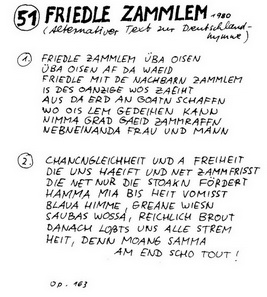 51 FRIEDLE ZAMMLEM 1980
(Alternativer Text zur Deutschland-
hymne)
1. FRIEDLE ZAMMLEM ÜBA OISEN
ÜBA OISEN AF DA WAEID
FRIEDLE MIT DE NACHBARN ZAMMLEM
IS DES OANZIGE WOS ZAEIHT
AUS DA ERD AN GOATN SCHAFFN
WO OIS LEM GEDEIHEN KANN
NIMMA GRAD GAEID ZAMMRAFFEN
NEBNEINANDA FRAU UND MANN
2. CHANCNGLEICHHEIT UND A FREIHEIT
DIE UNS HAEIFT UND NET ZAMMFRISST
DIE NET NUR DIE STOAKN FÖRDERT
HAMMA MIA BIS HEIT VOMISST
BLAUA HIMME, GREANE WIESN
SAUBAS WOSSA, REICHLICH BROUT
DANACH LOßTS UNS ALLE STREM
HEIT, DENN MOANG SAMMA
AM END SCHO TOUT!
Op. 163